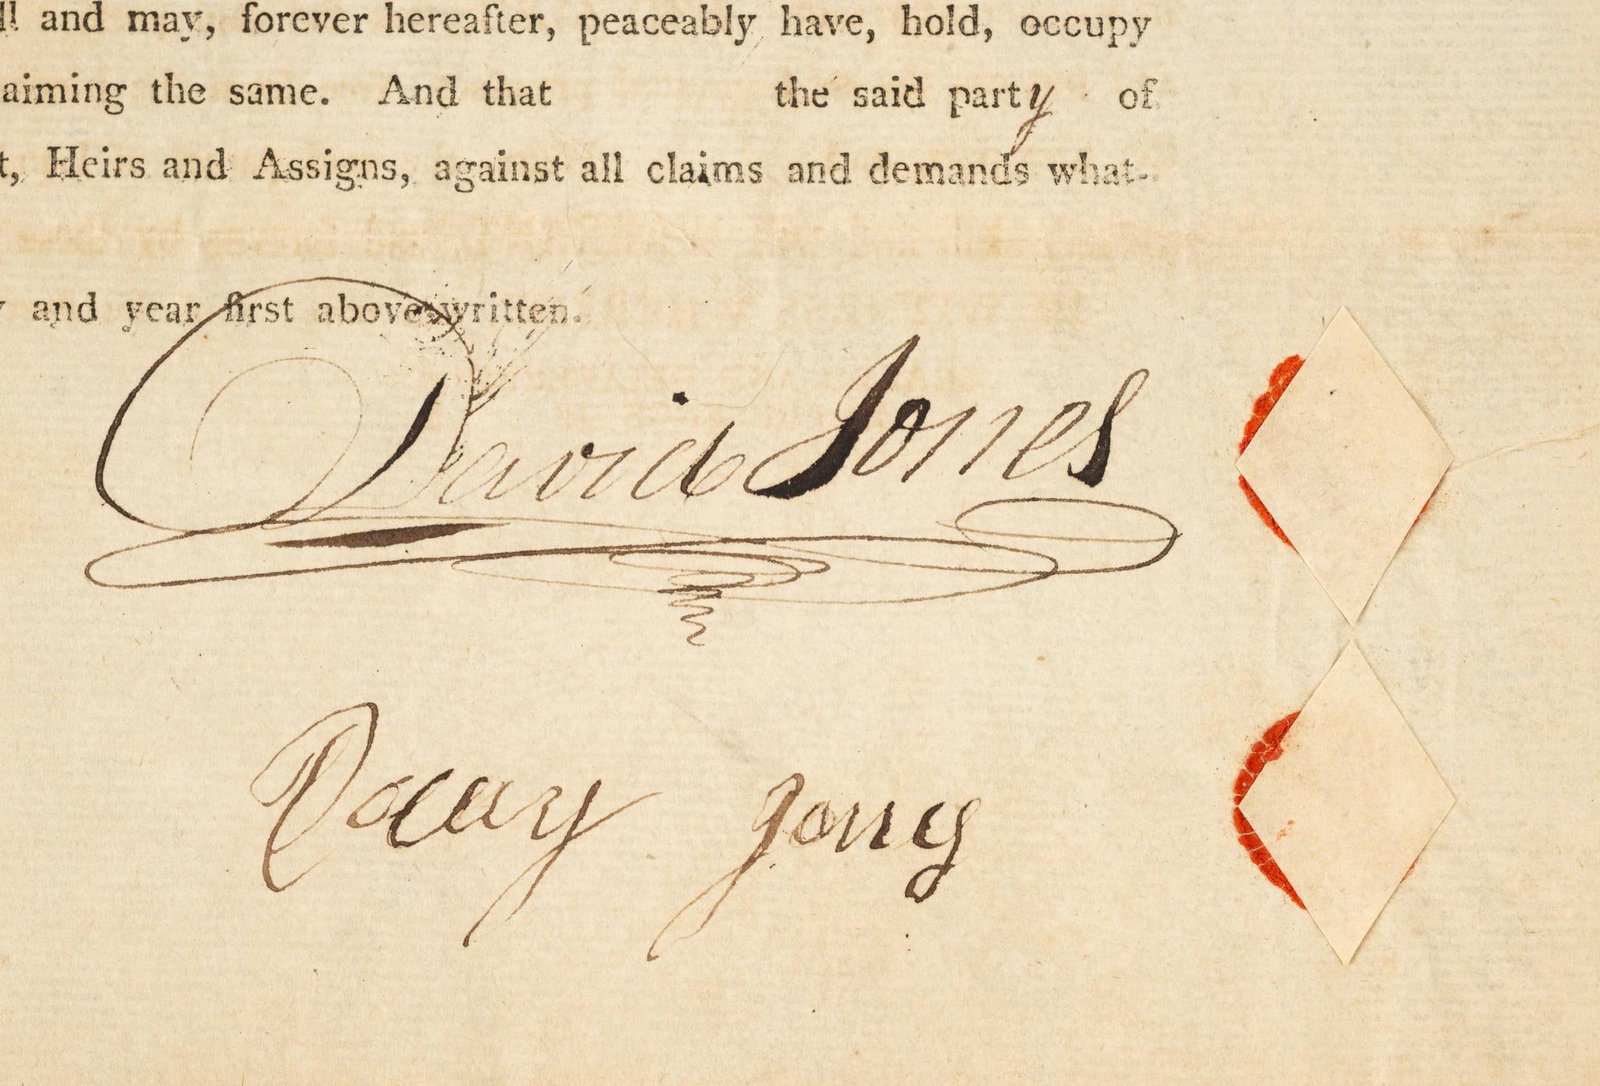 ll and may, forever hereafter, peaceably have, hold, occupy
aiming the same. And that the said party of
t, Heirs and Assigns, against all claims and demands what-
y and year first above written.
David Jones